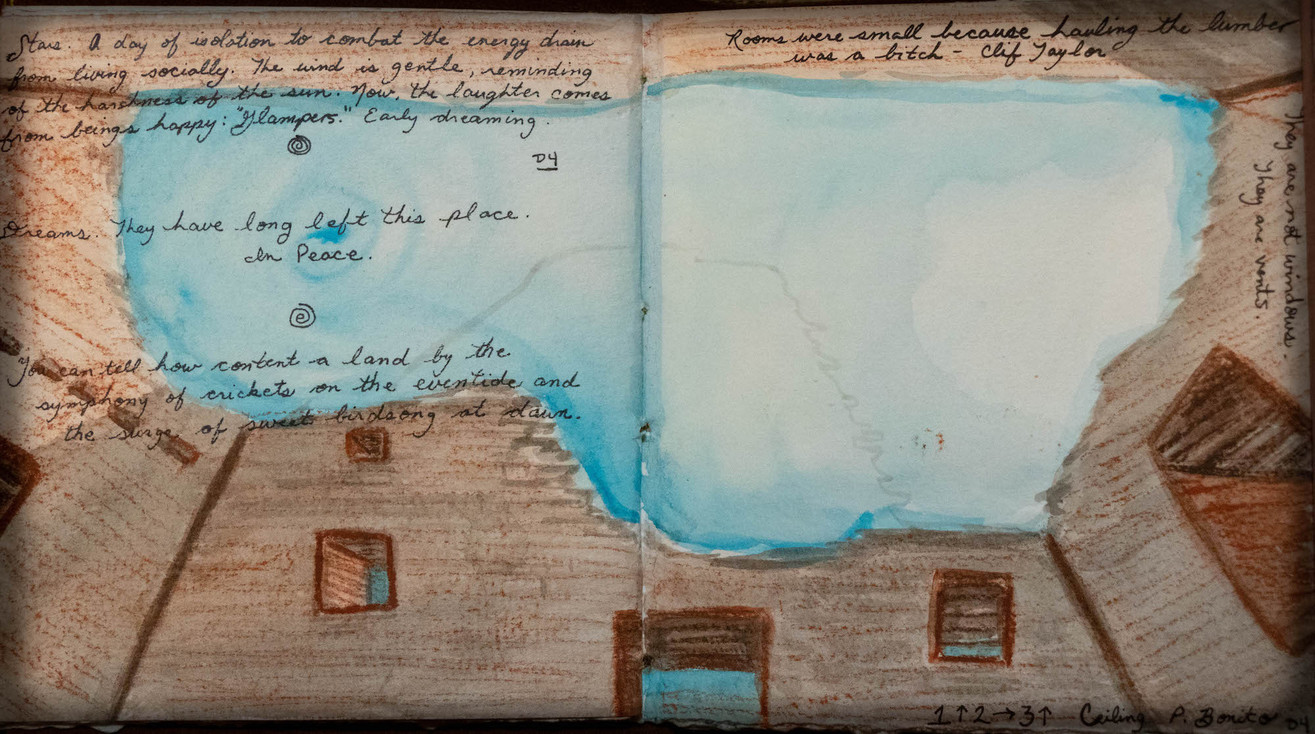 Stars. A day of isolation to combat the energy drain
from living socially. The wind is gentle, reminding
of the harshness of the sun. Now, the laughter comes
from beings happy: "Glampers." Early dreaming.
D4
Dreams. They have long left this place.
In Peace.
You can tell how content a land by the
symphony of crickets on the eventide and
the surge of sweet birdsong at dawn.
Rooms were small because hauling the lumber
was a bitch - Clif Taylor
They are not windows.
They are vents.
1↑2→3↑ Ceiling P. Bonito D4